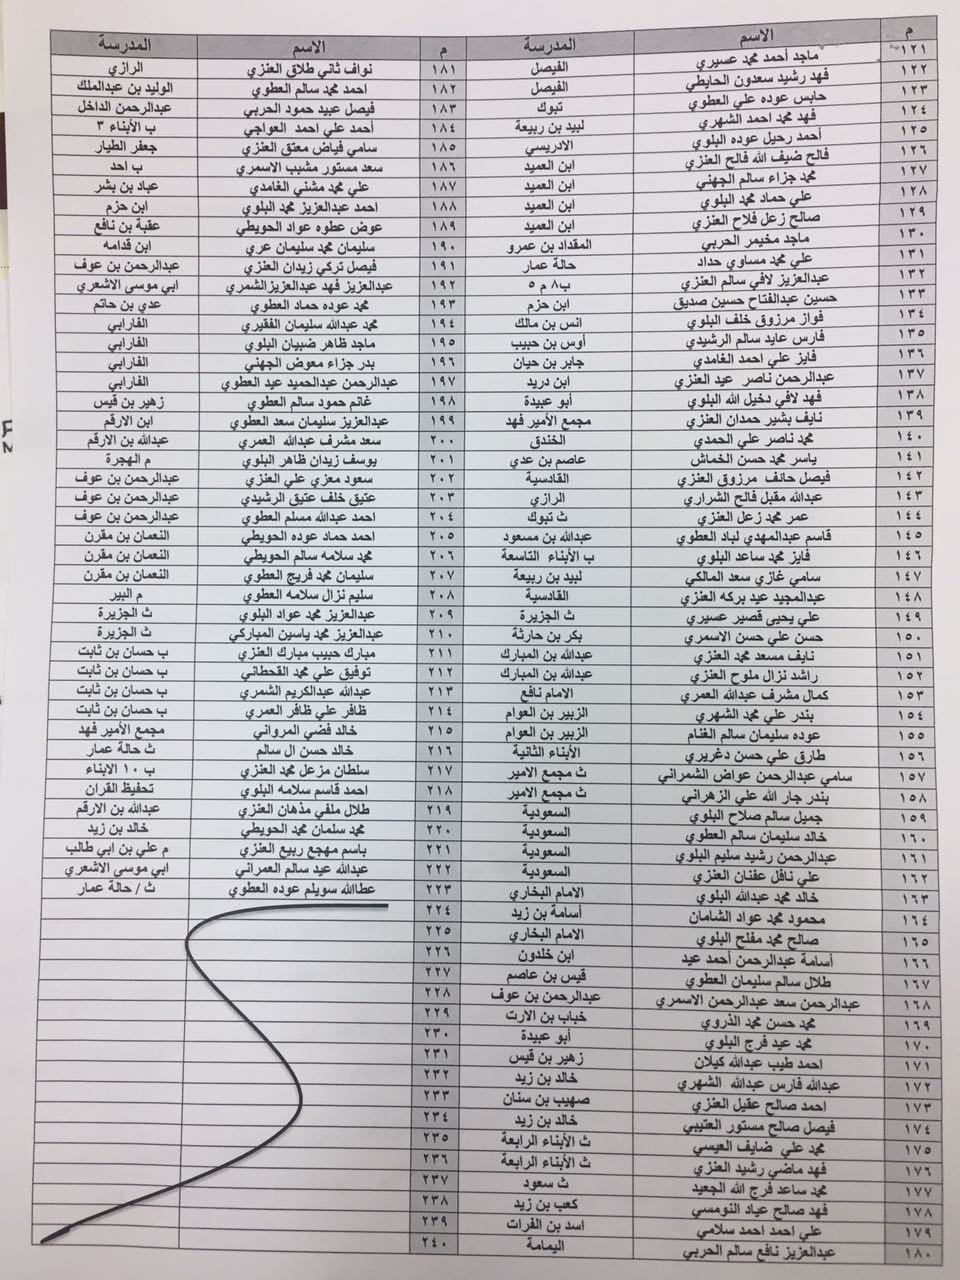 م الاسم المدرسة م الاسم المدرسة
١٢١ ماجد أحمد محمد عسيري الفيصل ١٨١ نواف ثاني طلاق العنزي الرازي
١٢٢ فهد رشيد سعدون الحايطي الفيصل ١٨٢ احمد محمد سالم العطوي الوليد بن عبدالملك
١٢٣ حابس عوده علي العطوي تبوك ١٨٣ فيصل عبيد حمود الحربي عبدالرحمن الداخل
١٢٤ فهد محمد احمد الشهري لبيد بن ربيعة ١٨٤ أحمد علي احمد العواجي ب الأبناء ٣
١٢٥ أحمد رحيل عوده البلوي الادريسي ١٨٥ سامي فياض معتق العنزي جعفر الطيار
١٢٦ فالح ضيف الله فالح العنزي ابن العميد ١٨٦ سعد مستور مشبب الاسمري ب احد
١٢٧ محمد جزاء سالم الجهني ابن العميد ١٨٧ علي محمد مشني الغامدي عباد بن بشر
١٢٨ علي حماد محمد البلوي ابن العميد ١٨٨ احمد عبدالعزيز محمد البلوي ابن حزم
١٢٩ صالح زعل فلاح العنزي ابن العميد ١٨٩ عوض عطوه عواد الحويطي عقبة بن نافع
١٣٠ ماجد مخيمر الحربي المقداد بن عمرو ١٩٠ سليمان محمد سليمان عري ابن قدامه
١٣١ علي محمد مساوي حداد حالة عمار ١٩١ فيصل تركي زيدان العنزي عبدالرحمن بن عوف
١٣٢ عبدالعزيز لافي سالم العنزي ب٨ م ٥ ١٩٢ عبدالعزيز فهد عبدالعزيزالشمري ابي موسى الاشعري
١٣٣ حسين عبدالفتاح حسين صديق ابن حزم ١٩٣ محمد عوده حماد العطوي عدي بن حاتم
١٣٤ فواز مرزوق خلف البلوي انس بن مالك ١٩٤ محمد عبدالله سليمان الفقيري الفارابي
١٣٥ فارس عايد سالم الرشيدي أوس بن حبيب ١٩٥ ماجد ظاهر ضبيان البلوي الفارابي
١٣٦ فايز علي احمد الغامدي جابر بن حيان ١٩٦ بدر جزاء معوض الجهني الفارابي
١٣٧ عبدالرحمن ناصر عيد العنزي ابن دريد ١٩٧ عبدالرحمن عبدالحميد عيد العطوي الفارابي
١٣٨ فهد لافي دخيل الله البلوي أبو عبيدة ١٩٨ غانم حمود سالم العطوي زهير بن قيس
١٣٩ نايف بشير حمدان العنزي مجمع الأمير فهد ١٩٩ عبدالعزيز سليمان سعد العطوي ابن الارقم
١٤٠ محمد ناصر علي الحمدي الخندق ٢٠٠ سعد مشرف عبدالله العمري عبدالله بن الارقم
١٤١ ياسر محمد حسن الخماش عاصم بن عدي ٢٠١ يوسف زيدان ظاهر البلوي م الهجرة
١٤٢ فيصل حانف مرزوق العنزي القادسية ٢٠٢ سعود معزي علي العنزي عبدالرحمن بن عوف
١٤٣ عبدالله مقبل فالح الشراري الرازي ٢٠٣ عتيق خلف عتيق الرشيدي عبدالرحمن بن عوف
١٤٤ عمر محمد زعل العنزي ث تبوك ٢٠٤ احمد عبدالله مسلم العطوي عبدالرحمن بن عوف
١٤٥ قاسم عبدالمهدي لباد العطوي عبدالله بن مسعود ٢٠٥ احمد حماد عوده الحويطي النعمان بن مقرن
١٤٦ فايز محمد ساعد البلوي ب الأبناء التاسعة ٢٠٦ محمد سلامه سالم الحويطي النعمان بن مقرن
١٤٧ سامي غازي سعد المالكي لبيد بن ربيعة ٢٠٧ سليمان محمد فريج العطوي النعمان بن مقرن
١٤٨ عبدالمجيد عيد بركه العنزي القادسية ٢٠٨ سليم نزال سلامه العطوي م البير
١٤٩ علي يحيى قصير عسيري ث الجزيرة ٢٠٩ عبدالعزيز محمد عواد البلوي ث الجزيرة
١٥٠ حسن علي حسن الاسمري بكر بن حارثة ٢١٠ عبدالعزيز محمد ياسين المباركي ث الجزيرة
١٥١ نايف مسعد محمد العنزي عبدالله بن المبارك ٢١١ مبارك حبيب مبارك العنزي ب حسان بن ثابت
١٥٢ راشد نزال ملوح العنزي عبدالله بن المبارك ٢١٢ توفيق علي محمد القحطاني ب حسان بن ثابت
١٥٣ كمال مشرف عبدالله العمري الامام نافع ٢١٣ عبدالله عبدالكريم الشمري ب حسان بن ثابت
١٥٤ بندر علي محمد الشهري الزبير بن العوام ٢١٤ ظافر علي ظافر العمري ب حسان بن ثابت
١٥٥ عوده سليمان سالم الغنام الزبير بن العوام ٢١٥ خالد فضي المرواني مجمع الأمير فهد
١٥٦ طارق علي حسن دغريري الأبناء الثانية ٢١٦ خالد حسن ال سالم ث حالة عمار
١٥٧ سامي عبدالرحمن عواض الشمراني ث مجمع الامير ٢١٧ سلطان مزعل محمد العنزي ب ١٠ الابناء
١٥٨ بندر جار الله علي الزهراني ث مجمع الامير ٢١٨ احمد قاسم سلامه البلوي تحفيظ القران
١٥٩ جميل سالم صلاح البلوي السعودية ٢١٩ طلال ملفي مذهان العنزي عبدالله بن الارقم
١٦٠ خالد سليمان سالم العطوي السعودية ٢٢٠ محمد سلمان محمد الحويطي خالد بن زيد
١٦١ عبدالرحمن رشيد سليم البلوي السعودية ٢٢١ باسم مهجع ربيع العنزي م علي بن ابي طالب
١٦٢ علي نافل عفنان العنزي السعودية ٢٢٢ عبدالله عيد سالم العمراني ابي موسى الاشعري
١٦٣ خالد محمد عبدالله البلوي الامام البخاري ٢٢٣ عطاالله سويلم عوده العطوي ث / حالة عمار
١٦٤ محمود محمد عواد الشامان أسامة بن زيد ٢٢٤
١٦٥ صالح محمد مفلح البلوي الامام البخاري ٢٢٥
١٦٦ أسامة عبدالرحمن أحمد عيد ابن خلدون ٢٢٦
١٦٧ طلال سالم سليمان العطوي قيس بن عاصم ٢٢٧
١٦٨ عبدالرحمن سعد عبدالرحمن الاسمري عبدالرحمن بن عوف ٢٢٨
١٦٩ محمد حسن محمد الذروي خباب بن الارت ٢٢٩
١٧٠ محمد عيد فرج البلوي أبو عبيدة ٢٣٠
١٧١ احمد طيب عبدالله كيلان زهير بن قيس ٢٣١
١٧٢ عبدالله فارس عبدالله الشهري خالد بن زيد ٢٣٢
١٧٣ احمد صالح عقيل العنزي صهيب بن سنان ٢٣٣
١٧٤ فيصل صالح مستور العتيبي خالد بن زيد ٢٣٤
١٧٥ محمد علي ضايف العيسي ث الأبناء الرابعة ٢٣٥
١٧٦ فهد ماضي رشيد العنزي ث الأبناء الرابعة ٢٣٦
١٧٧ محمد ساعد فرج الله الجعيد ث سعود ٢٣٧
١٧٨ فهد صالح عياد النومسي كعب بن زيد ٢٣٨
١٧٩ علي احمد احمد سلامي اسد بن الفرات ٢٣٩
١٨٠ عبدالعزيز نافع سالم الحربي اليمامة ٢٤٠